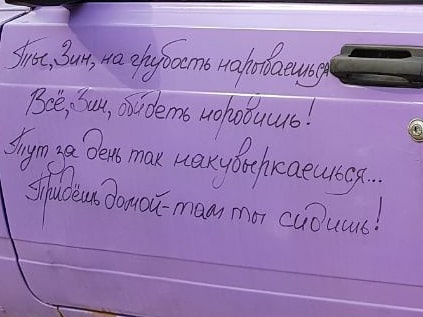 Ты, Зин, на грубость нарываешься
Всё, Зин, обидеть норовишь!
Тут за день так накувыркаешься...
Придёшь домой-там ты сидишь!